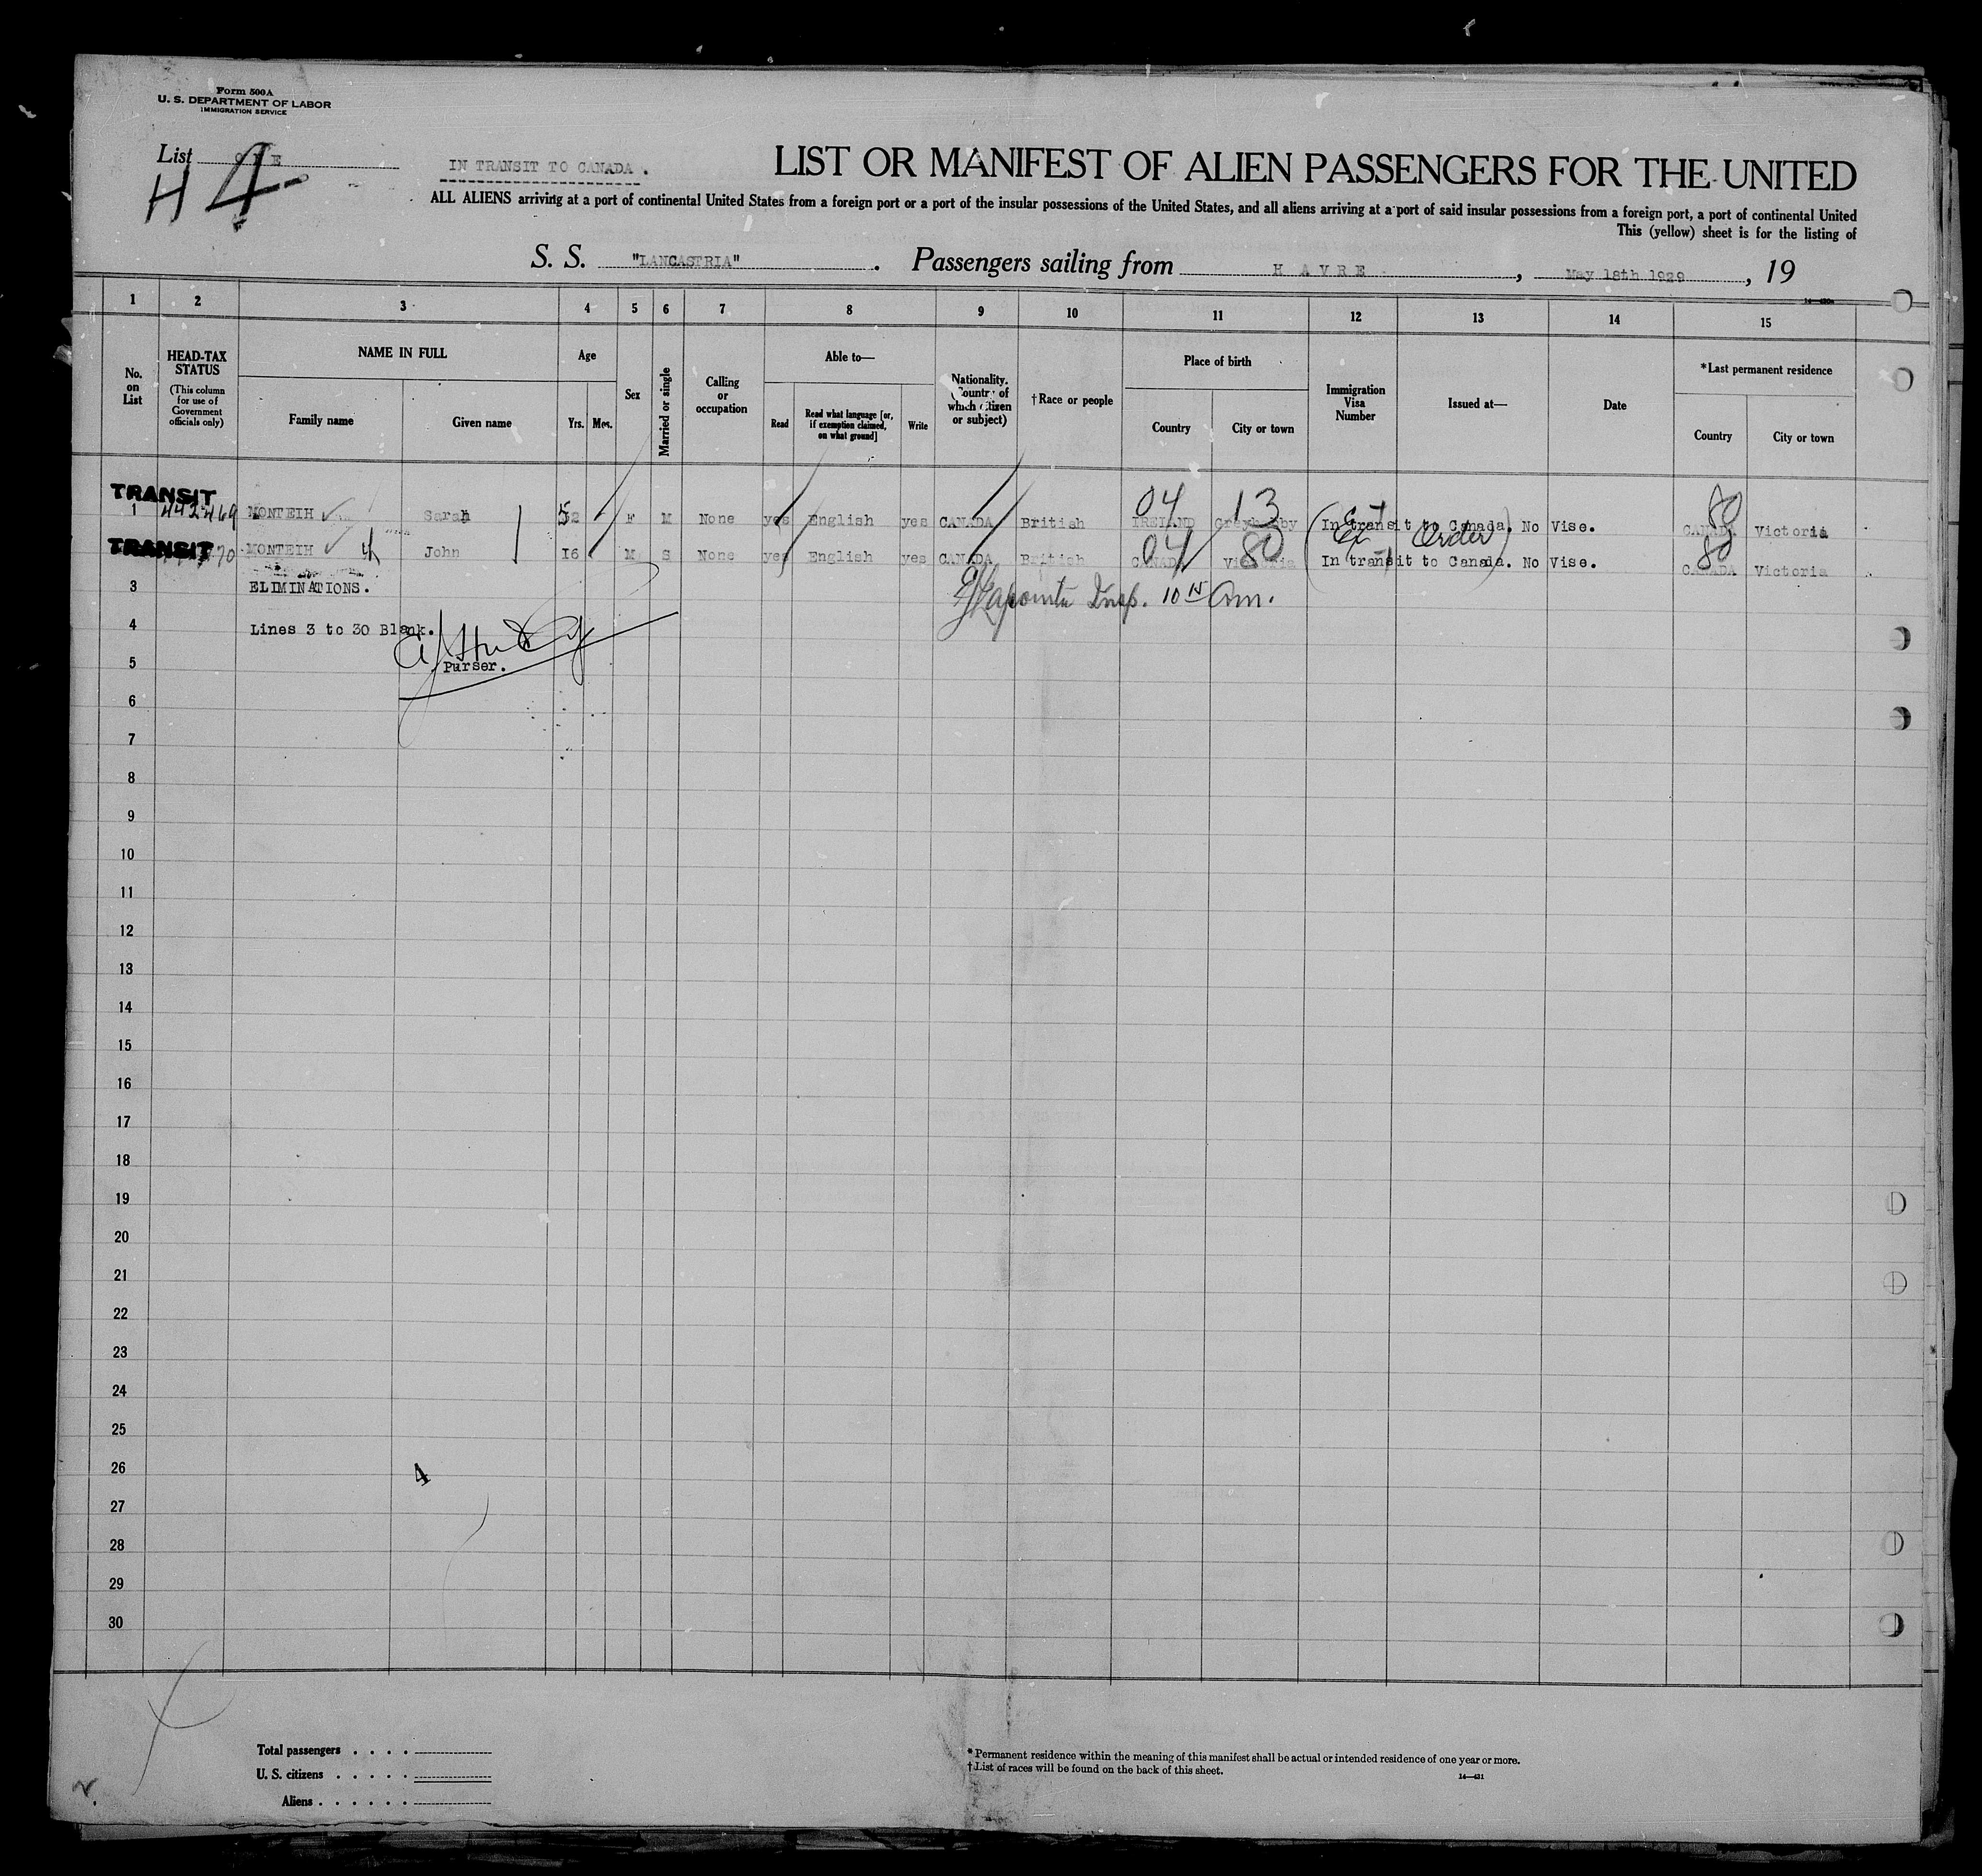 Form 500A
U. S. DEPARTMENT OF LABOR
IMMIGRATION SERVICE
List ONE
H 4-
IN TRANSIT TO CANADA .
LIST OR MANIFEST OF ALIEN PASSENGERS FOR THE UNITED
ALL ALIENS arriving at a port of continental United States from a foreign port or a port of the insular possessions of the United States, and all aliens arriving at a port of said insular possessions from a foreign port, a port of continental United
This (yellow) sheet is for the listing of
S. S. "LANCASTRIA" . Passengers sailing from H A V R E , May 18th 1929 , 19
1 2 3 4 5 6 7 8 9 10 11 12 13 14 15
No. on List
HEAD-TAX STATUS
(This column for use of Government officials only)
NAME IN FULL
Family name
Given name
Age
Yrs.
Mos.
Sex
Married or single
Calling or occupation
Able to—
Read
Read what language [or, if exemption claimed, on what ground]
Write
Nationality. Country of which citizen or subject)
†Race or people
Place of birth
Country
City or town
Immigration Visa Number
Issued at—
Date
*Last permanent residence
Country
City or town
TRANSIT
04 13 80
1 442469 MONTEIH Sarah 52 F M None yes English yes CANADA British IRELAND In transit to Canada. No Vise. CANADA Victoria
Order
TRANSIT 70 MONTEIH 4 John 16 M S None yes English yes CANADA British CANADA Victoria In transit to Canada. No Vise. CANADA Victoria
04 80 80
3 ELIMINATIONS.
Lapointe Insp. 10 15 Am.
4 Lines 3 to 30 Blank.
5 Purser.
6
7
8
9
10
11
12
13
14
15
16
17
18
19
20
21
22
23
24
25
26
4
27
28
29
30
Total passengers . . . .
U. S. citizens . . . . .
Aliens . . . . . .
* Permanent residence within the meaning of this manifest shall be actual or intended residence of one year or more.
† List of races will be found on the back of this sheet.
14—431